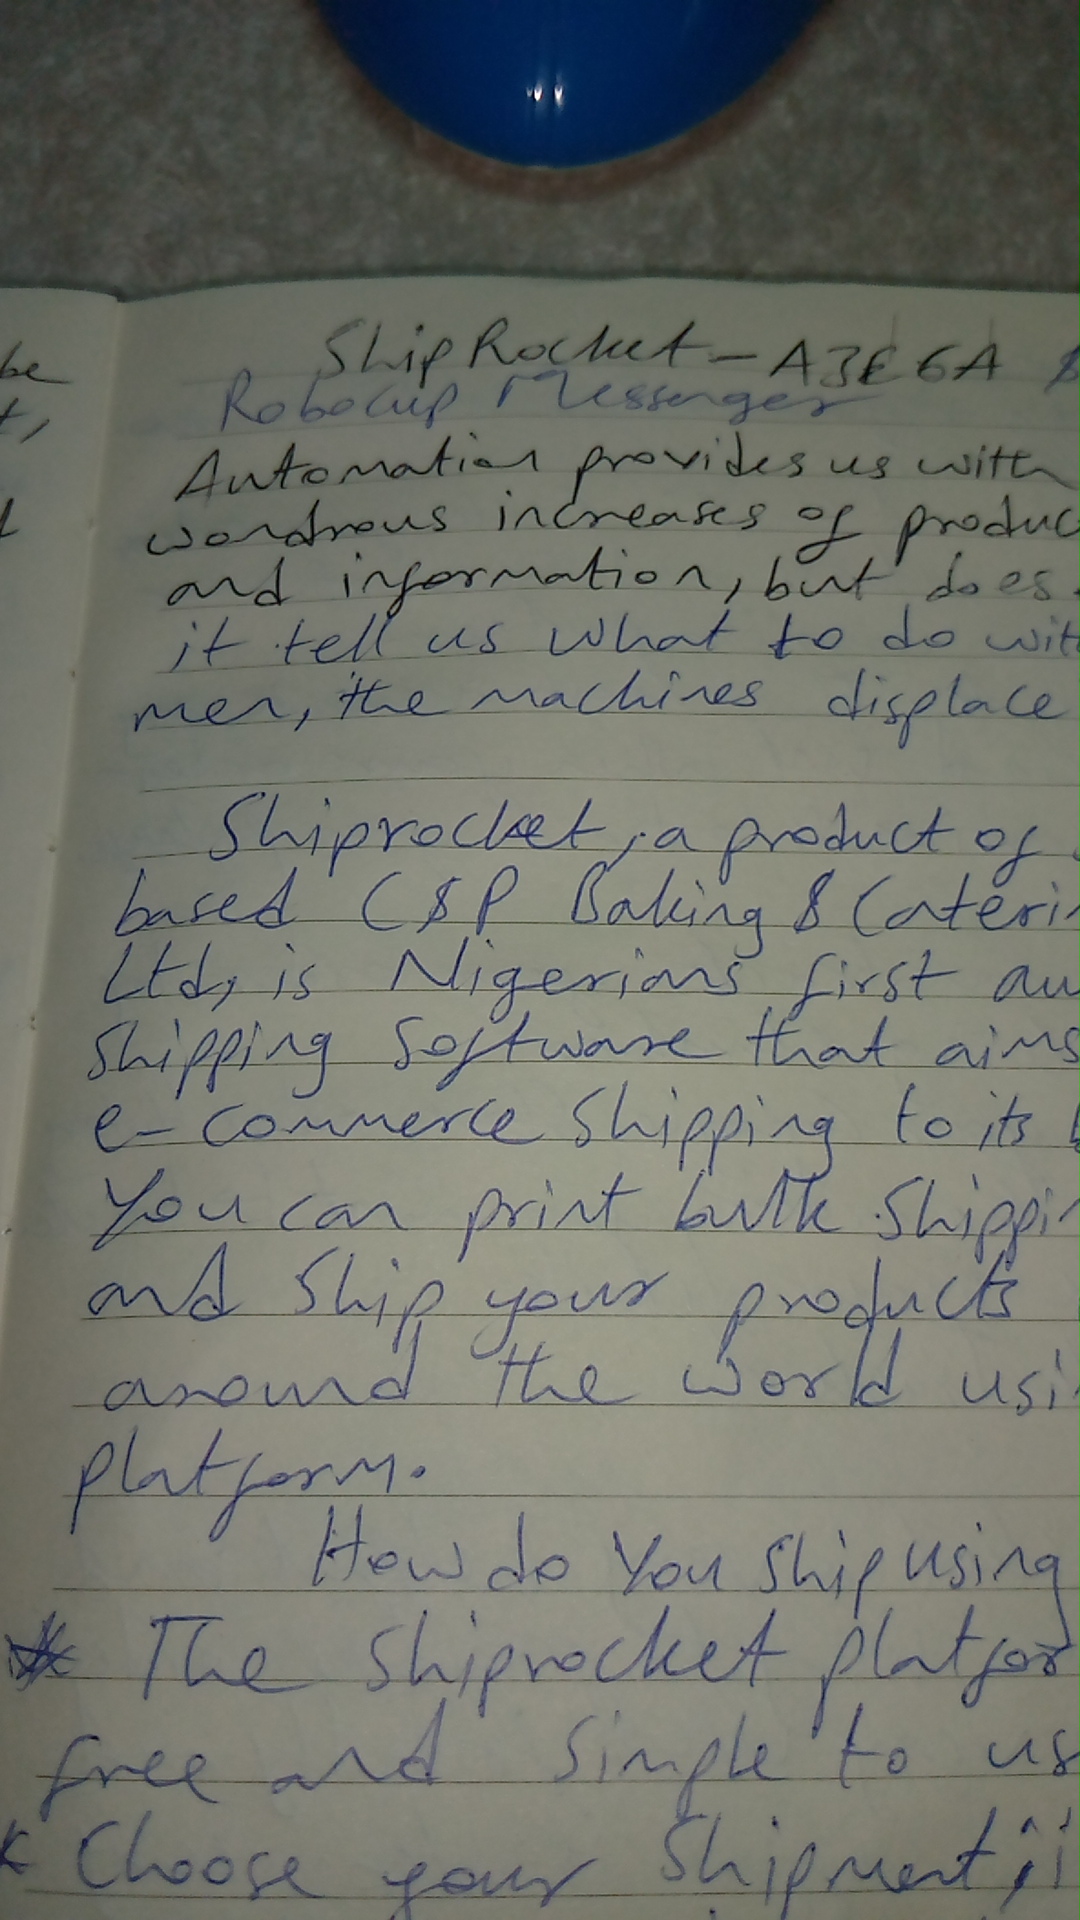 be
t,
ShipRocket - A3E6A
Robocup Messenger
Automation provides us with
wondrous increases of produc
and information, but does
it tell us what to do wit
men, the machines displace
Shiprocket, a product of
based CSP Baking & Caterin
Ltd, is Nigerians first au
Shipping Software that aims
e-commerce Shipping to its b
You can print bulk Shippin
and Ship your products
around the world usi
platform.
How do You Ship using
* The Shiprocket platfor
free and Simple to us
* Choose your Shipment, i